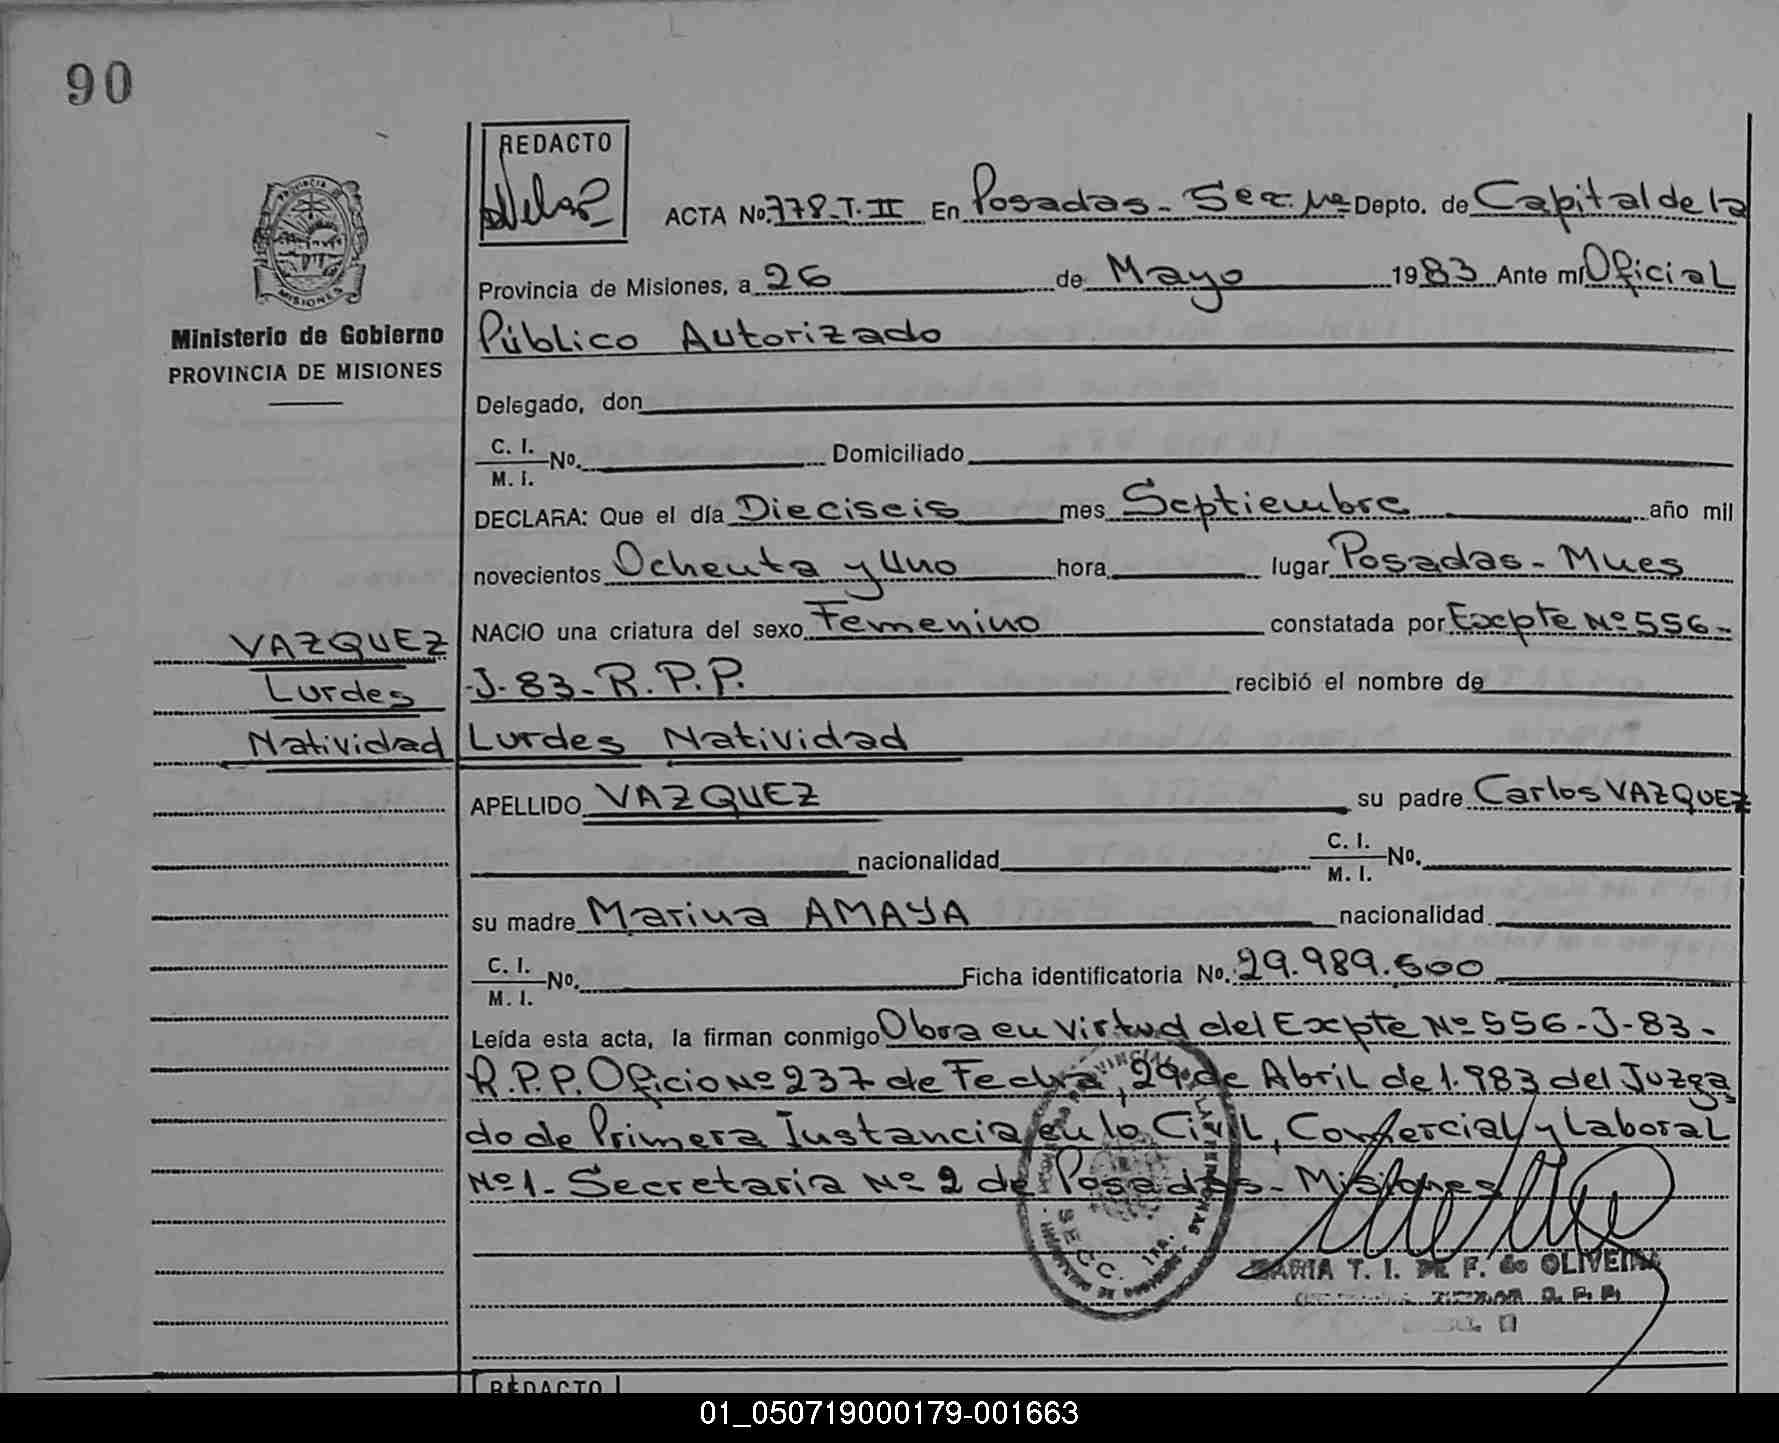 90
REDACTO
ACTA No. 778-T. II En Posadas - Secc. 1ra Depto. de Capital de la
Provincia de Misiones, a 26 de Mayo 1983 Ante mí Oficial
Público Autorizado
MISIONES
Ministerio de Gobierno
PROVINCIA DE MISIONES
Delegado, don
C. I.
M. I. No. Domiciliado
DECLARA: Que el día Dieciseis mes Septiembre año mil
novecientos Ochenta y Uno hora lugar Posadas - Mnes
NACIO una criatura del sexo Femenino constatada por Expte Nº 556-
J-83- R.P.P. recibió el nombre de
Lurdes Natividad
VAZQUEZ
Lurdes
Natividad
APELLIDO VAZQUEZ su padre Carlos VAZQUEZ
nacionalidad C. I.
M. I. No.
su madre Marina AMAYA nacionalidad
C. I.
M. I. No. Ficha identificatoria No. 29.989.600
Leída esta acta, la firman conmigo Obra en virtud del Expte Nº 556-J-83-
R.P.P. Oficio Nº 237 de Fecha, 29 de Abril de 1.983 del Juzga
do de Primera Instancia en lo Civil, Comercial y Laboral
Nº 1- Secretaria Nº 2 de Posadas - Misiones
SECC. 1RA.
MARIA T. I. DE F. de OLIVEIRA
REDACTO
01_050719000179-001663